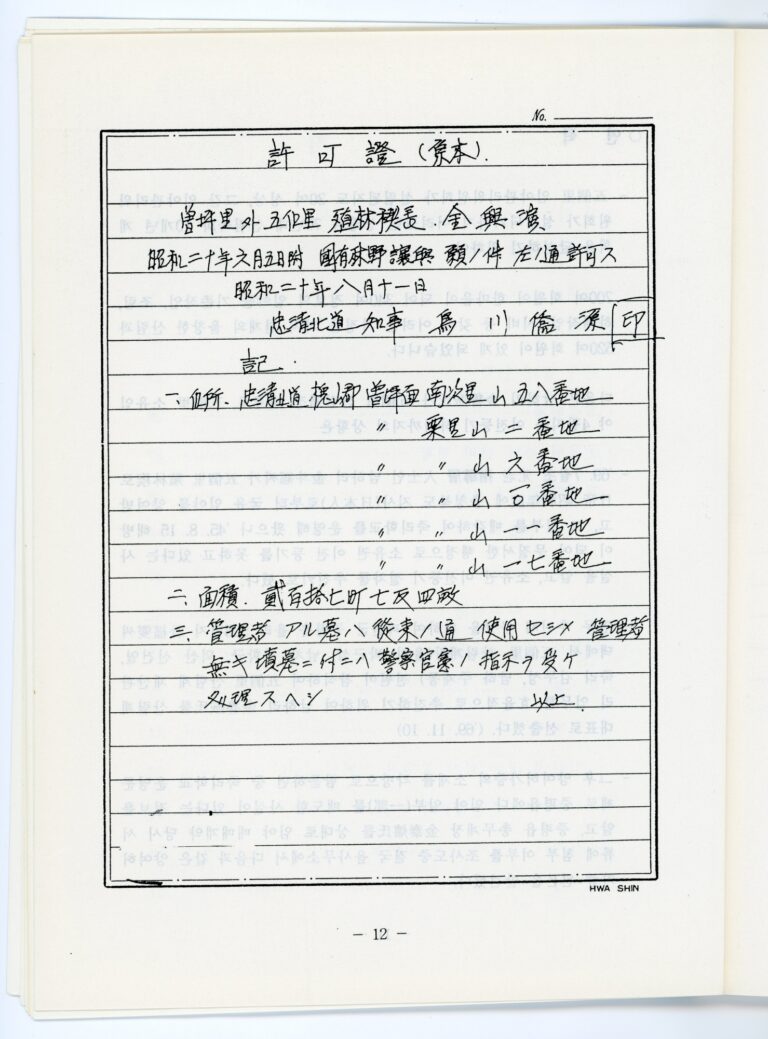 No.
許可證 (原本).
曾坪里外五個里 殖林稧長 金興演
昭和二十年六月五日附 國有林野讓與 願ノ件 左ノ通 許可ス
昭和二十年八月十一日
忠淸北道 知事 烏川僑源 印
記.
一. 位所. 忠淸北道 槐山郡 曾坪面 南次里 山 五八番地
〃 栗里 山 二 番地
〃 〃 山 六 番地
〃 〃 山 番地
〃 〃 山 一一番地
〃 〃 山 一七番地
二. 面積. 貳百拾七町七反四畝
三. 管理者 アル墓ハ 從來ノ通 使用セシメ 管理者
無キ 墳墓ニ付ニハ 警察官憲ノ 指示ヲ 受ケ
処理スヘシ 以上.
HWA SHIN
- 12 -